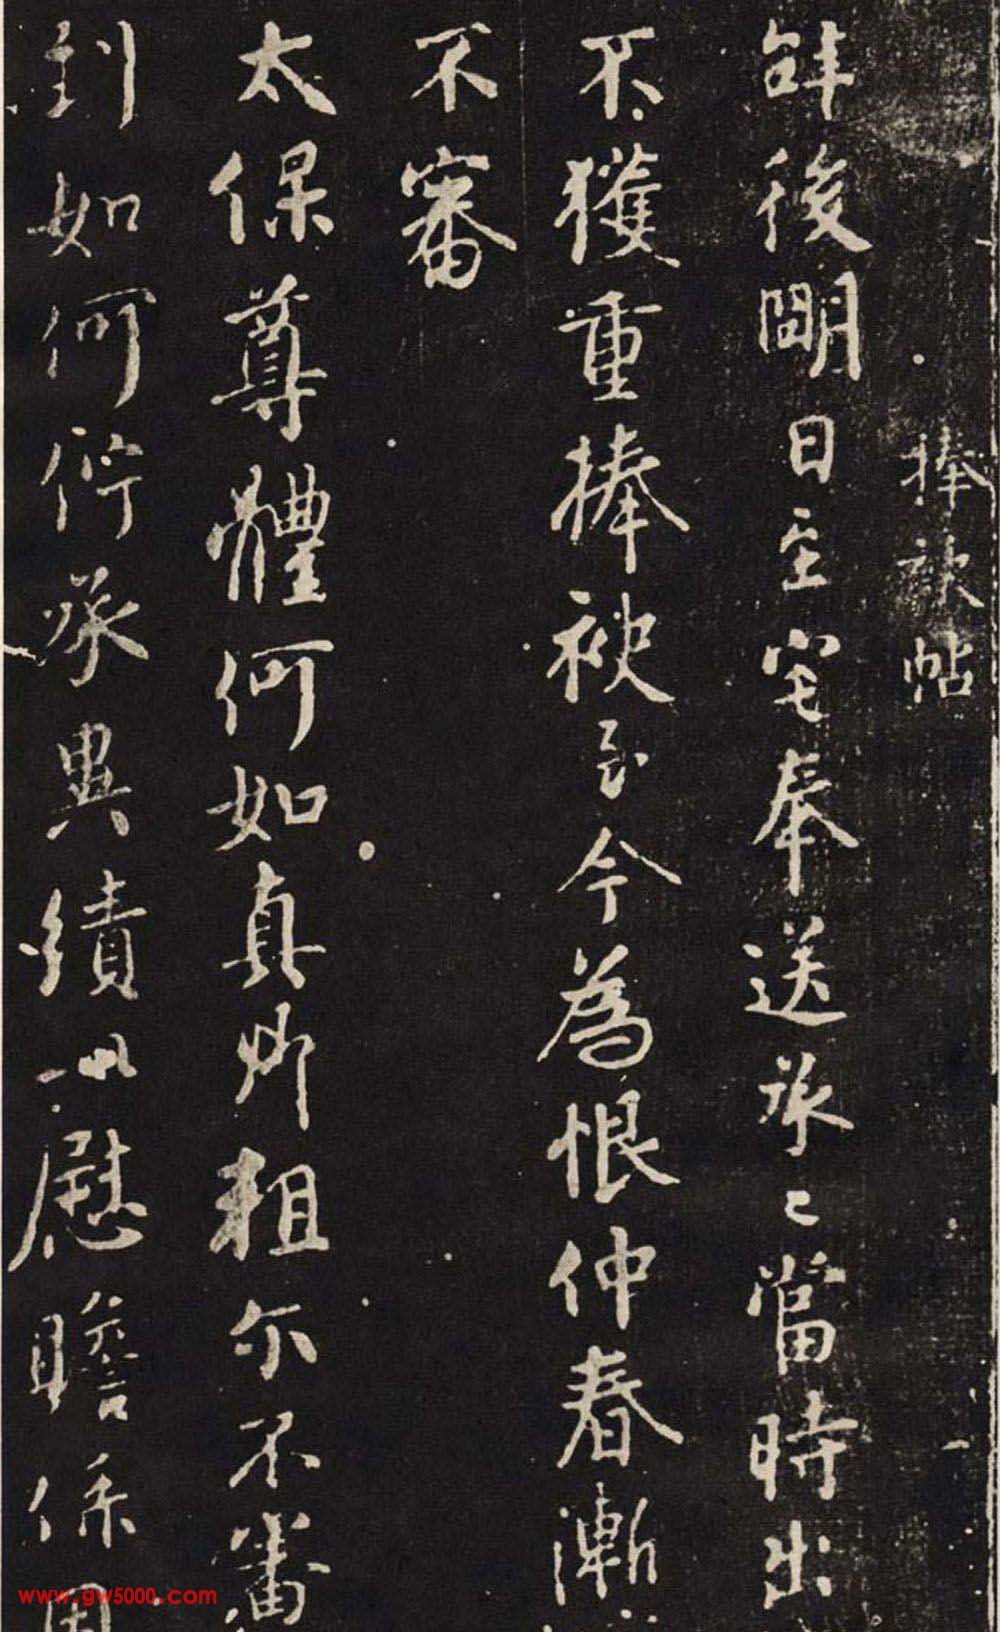 捧袂帖
辞後明日至宅奉送承〻當時出
不獲重捧袂至今為恨仲春漸
不審
太保尊體何如真卿粗尔不審
到如何佇承異績以慰瞻係
www.gw5000.com